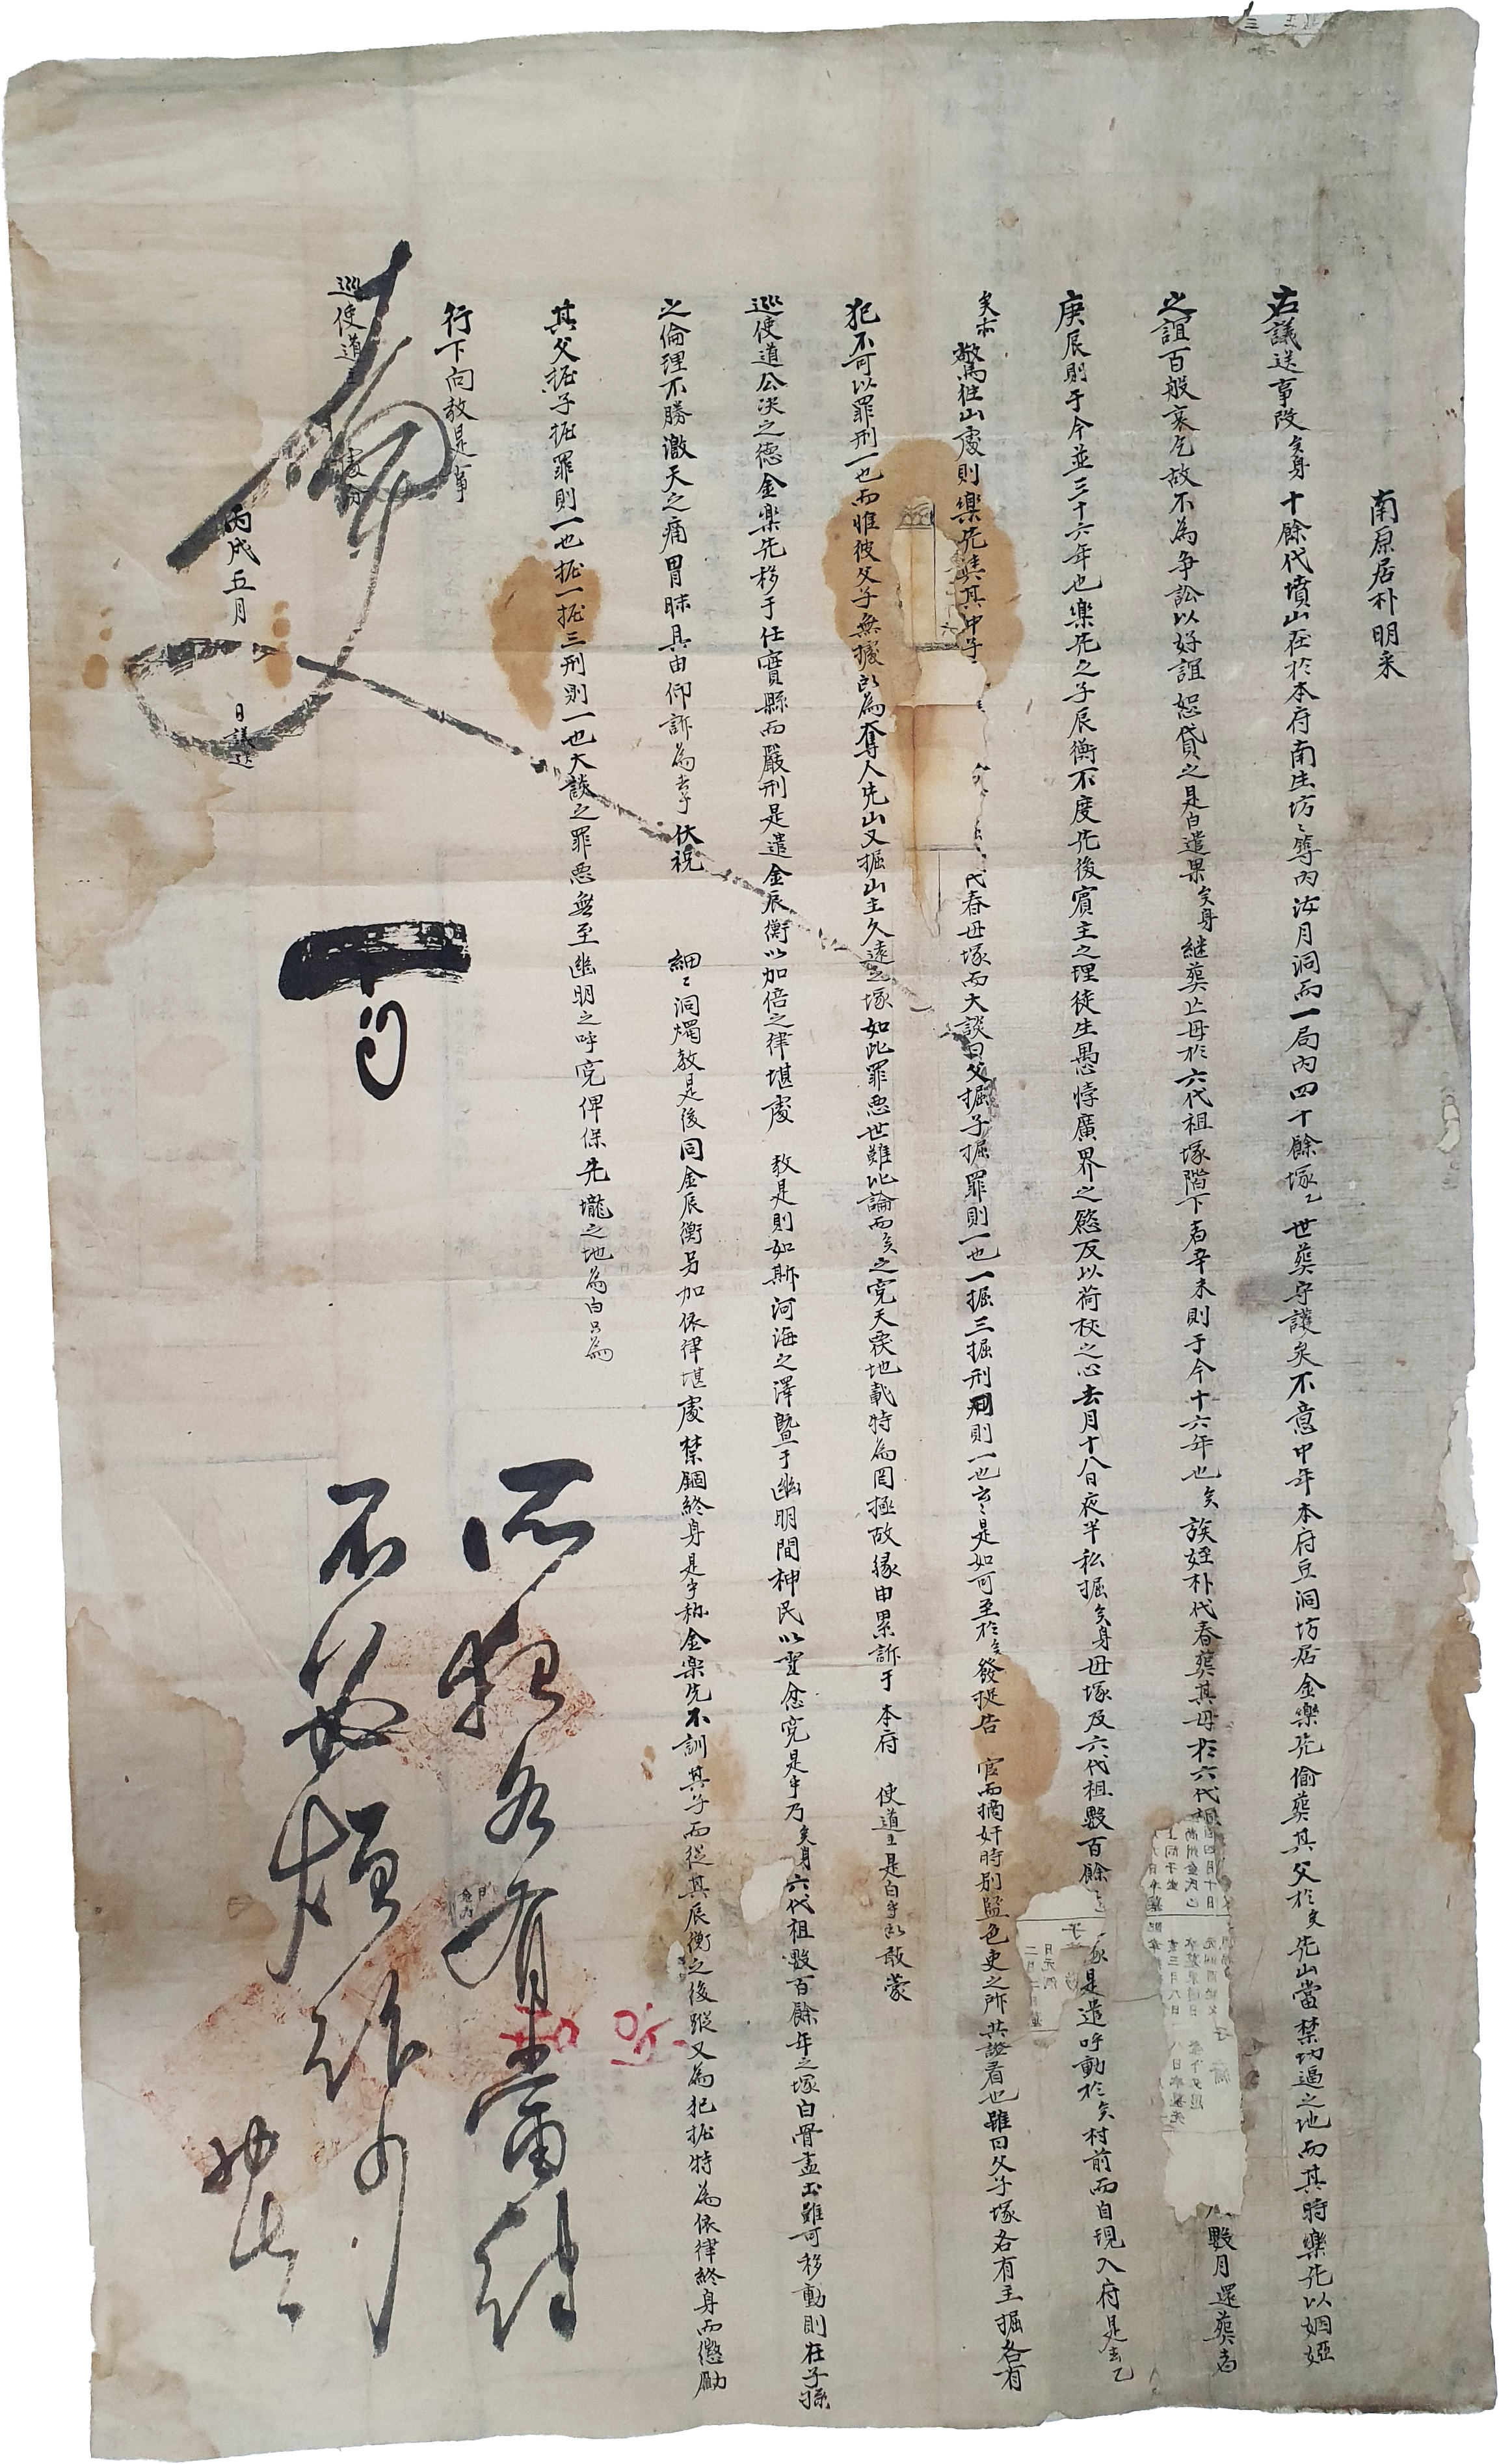 南原居朴明采
右議送事段矣身十餘代墳山在於本府南生坊〻尊內海月洞而一局內四十餘塚乙世葬守護矣不意中年本府豆洞坊居金樂先偷葬其父於矣先山當禁切逼之地而其時樂先以姻婭
之誼百般哀乞故不爲爭訟以好誼恕貸之是白遣果矣身継葬亡母於六代祖塚階下者辛未則于今十六年也矣族姪朴代春葬其母於六代祖 數月還葬者
庚辰則于今並三十六年也樂先之子辰衡不度先後賓主之理徒生愚悖廣界之慾反以荷杖之心去月十八日夜半私掘矣身母塚及六代祖數百餘 塚是遣呼動於矣村前而自現入府是去乙
矣亦驚往山處則樂先與其中子 代春母塚而大談曰父掘子掘罪則一也一掘三掘刑則一也云〻是如可至於矣發捉告 官而摘奸時別監色吏之所共證看也雖曰父子塚各有主掘各有
犯不可以罪刑一也而惟彼父子無據以爲奪人先山又掘山主久遠之塚如此罪惡世難比論而矣之寃天戾地載特爲罔極故緣由累訴于 本府 使道主是白乎所敢蒙
巡使道公決之德金樂先移于任實縣而嚴刑是遣金辰衡以加倍之律堪處 教是則如斯河海之澤曁于幽明間神民以雪忿寃是乎乃矣身六代祖數百餘年之塚白骨盡出雖可移動則在子孫
之倫理不勝激天之痛冒昧具由仰訴爲去乎伏祝 細〻洞燭教是後同金辰衡另加依律堪處禁錮終身是乎於金樂先不訓其子而從其辰衡之後蹤又爲犯掘特爲依律終身而懲勵
其父掘子掘罪則一也掘一掘三刑則一也大談之罪惡無至幽明之呼寃俾保先壠之地爲白只爲
行下向教是事
巡使道主 處分
丙戌五月 日議送
所犯各有當律
不必煩訴向
事